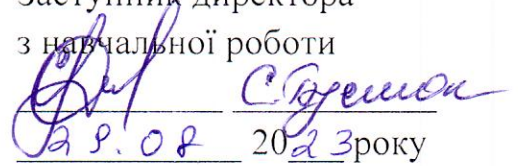 Заступник директора
з навчальної роботи
29.08 2023року